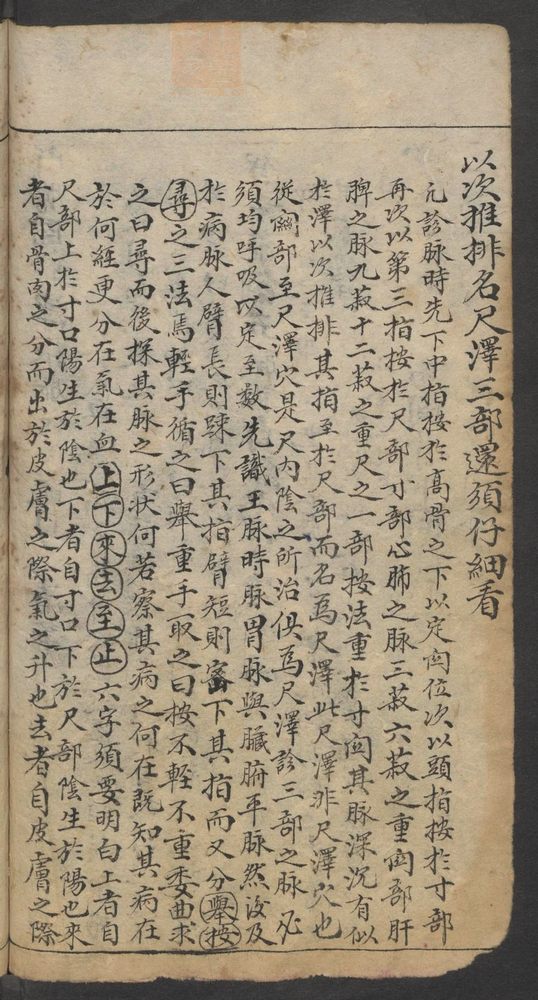 以次推排名尺澤三部還須仔細看
凡診脉時先下中指按於高骨之下以定関位次以頭指按於寸部
再次以第三指按於尺部寸部心肺之脉三菽六菽之重関部肝
脾之脉九菽十二菽之重尺之一部按法重於寸関其脉深沉有似
於澤以次推排其指至於尺部而名爲尺澤此尺澤非尺澤穴也
從関部至尺澤穴是尺内陰之所治俱爲尺澤診三部之脉必
須均呼吸以定至數先識王脉時脉胃脉與臓腑平脉然後及
於病脉人臂長則踈下其指臂短則密下其指而又分舉按
尋之三法焉輕手循之曰舉重手取之曰按不輕不重委曲求
之曰尋而後探其脉之形状何若察其病之何在既知其病在
於何經更分在氣在血上下來去至止六字須要明白上者自
尺部上於寸口陽生於陰也下者自寸口下於尺部陰生於陽也來
者自骨肉之分而出於皮膚之際氣之升也去者自皮膚之際